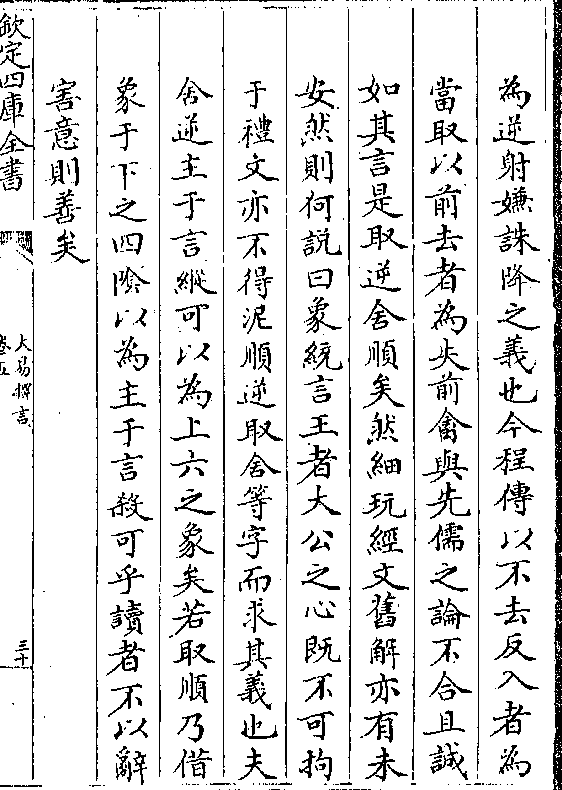 為逆射嫌誅降之義也今程傳以不去反入者為
當取以前去者為失前禽與先儒之論不合且誠
如其言是取逆舍順矣然細玩經文舊解亦有未
安然則何說曰象統言王者大公之心既不可拘
于禮文亦不得泥順逆取舍等字而求其義也夫
舍逆主于言縱可以為上六之象矣若取順乃借
象于下之四陰以為主于言殺可乎讀者不以辭
害意則善矣
欽定四庫全書
大易擇言
卷五
三十